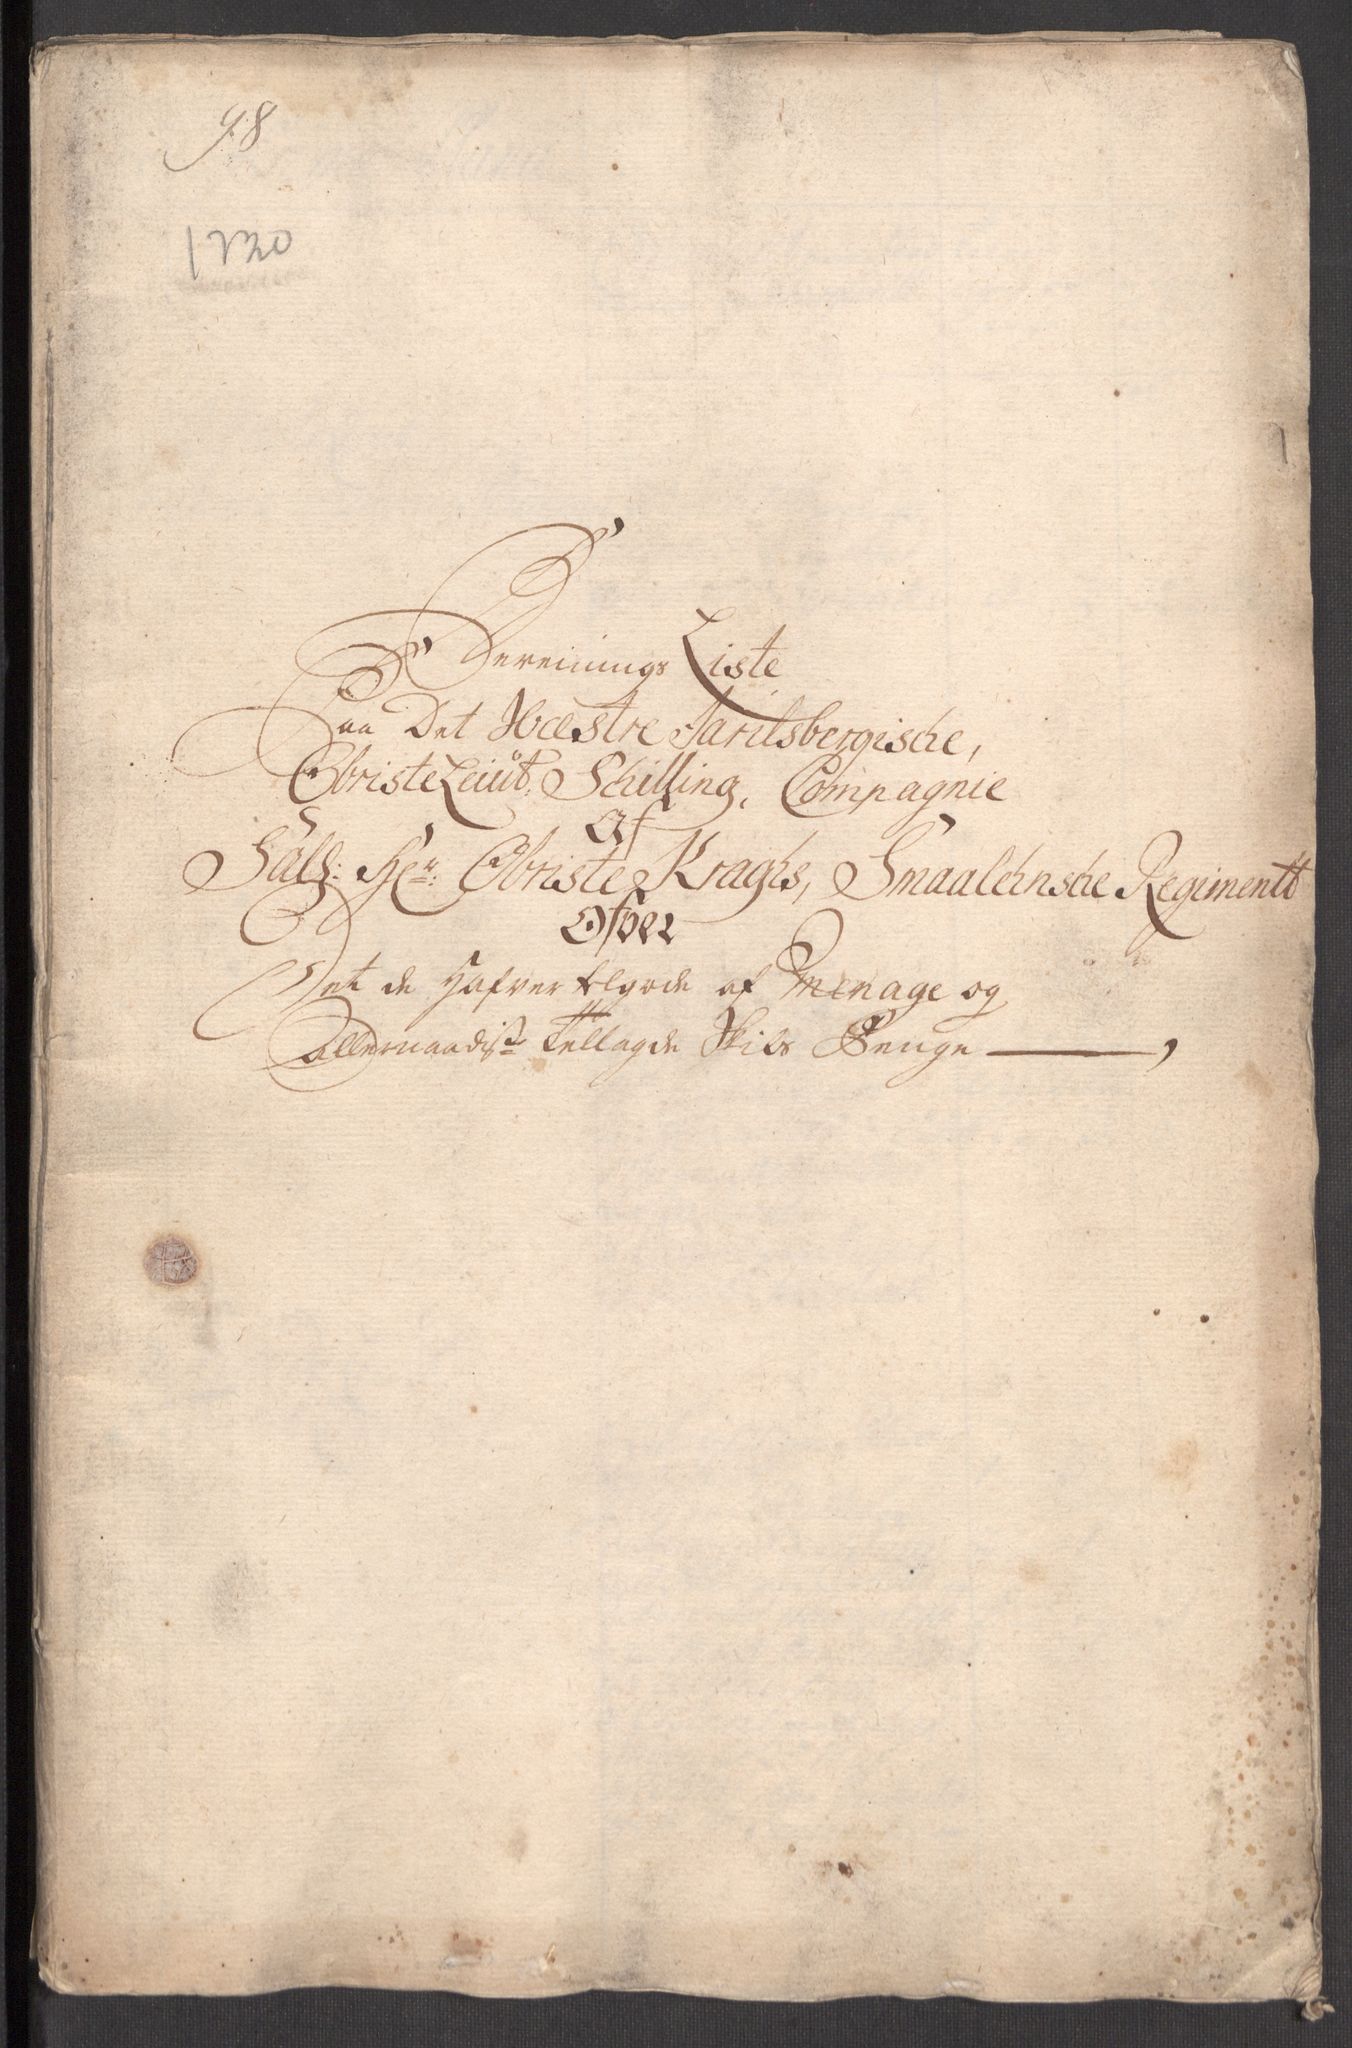 98
1720
Bereinings Liste
Paa Det Wæstre Jarilsbergische,
Obriste Leiut: Schilling, Compagnie
Af
Sal: Her: Obriste Kraghs, Smaalehnsche Regimentt
Ofver
Det de hafver af Menage og
Allernaadist Tillagde Skibs Penge